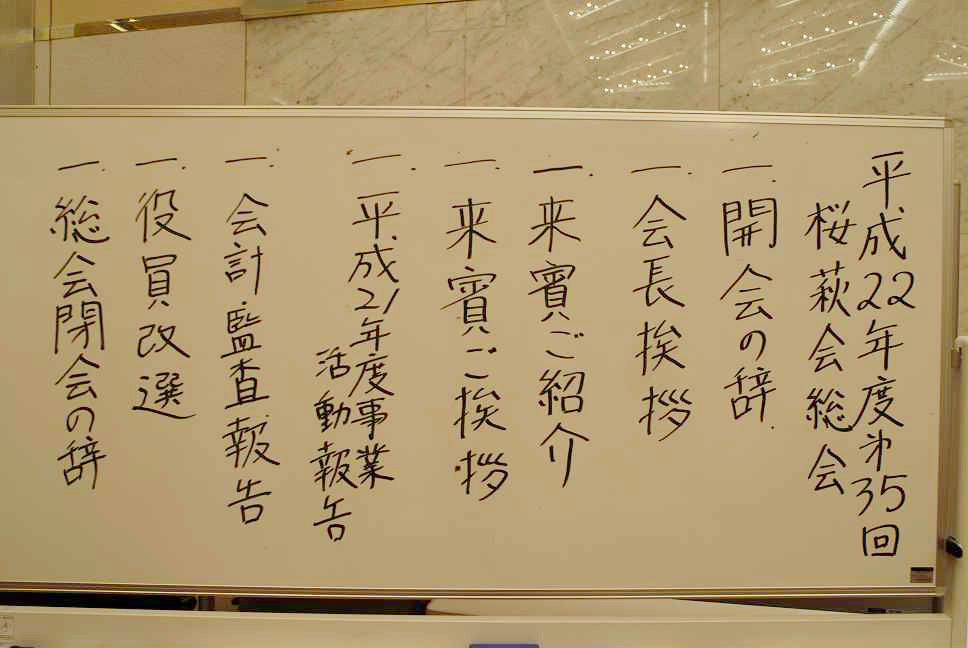 平成22年度第35回
桜萩会総会
一.開会の辞.
一.会長挨拶
一.来賓ご紹介
一.来賓ご挨拶
一.平成21年度事業
活動報告
一.会計監査報告
一.役員改選
一.総会閉会の辞